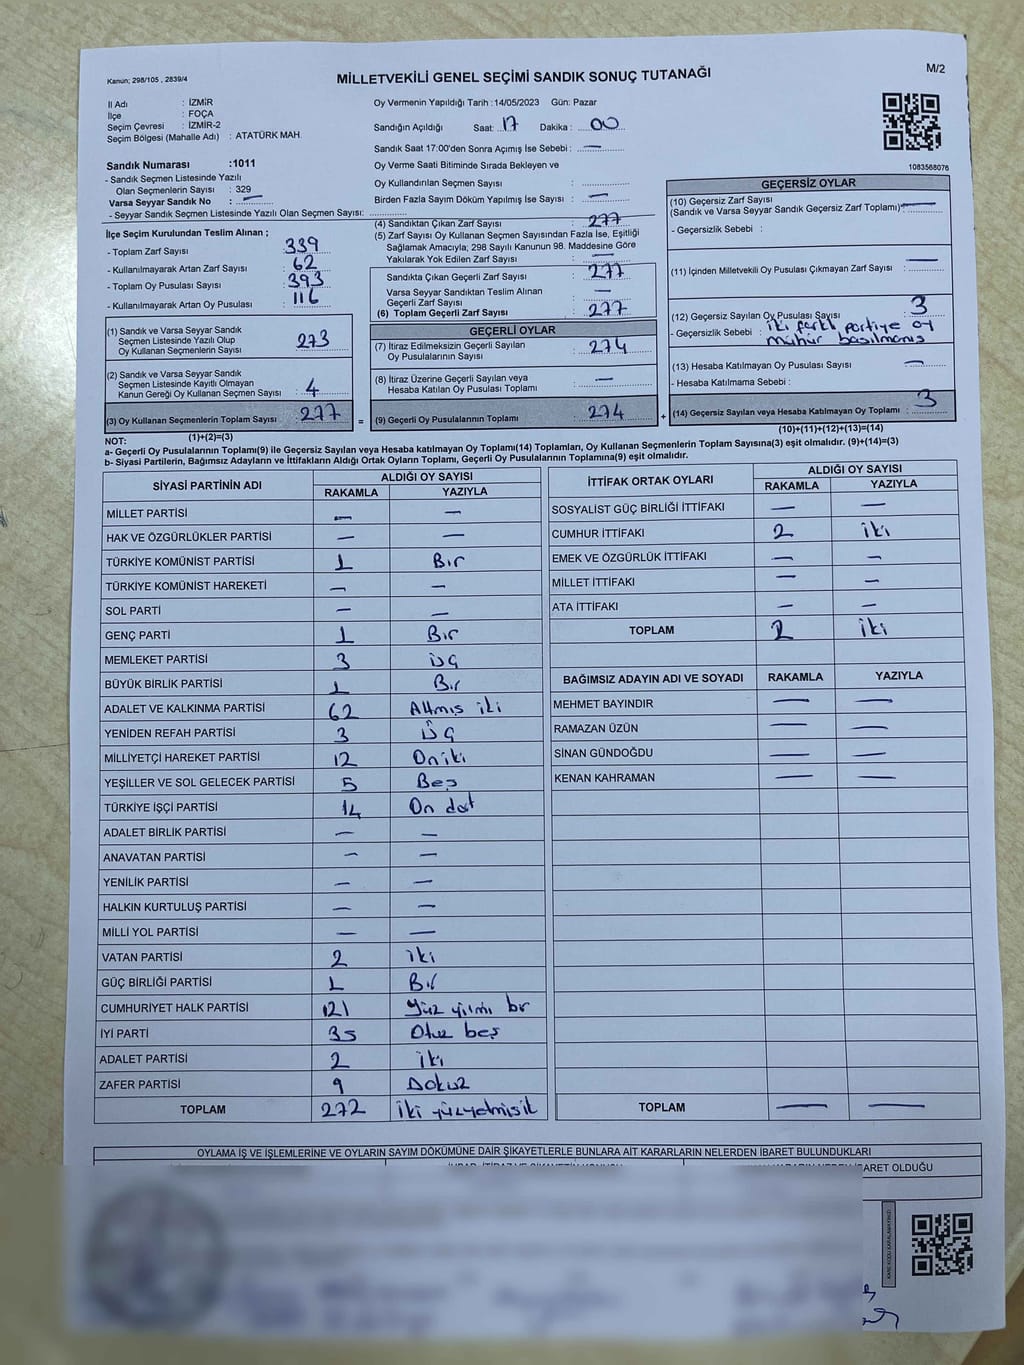 Kanun; 298/105 , 2839/4
MİLLETVEKİLİ GENEL SEÇİMİ SANDIK SONUÇ TUTANAĞI
M/2
İl Adı : İZMİR
İlçe : FOÇA
Seçim Çevresi : İZMİR-2
Seçim Bölgesi (Mahalle Adı) : ATATÜRK MAH.
Sandık Numarası :1011
- Sandık Seçmen Listesinde Yazılı
Olan Seçmenlerin Sayısı : 329
Varsa Seyyar Sandık No : —
- Seyyar Sandık Seçmen Listesinde Yazılı Olan Seçmen Sayısı:
İlçe Seçim Kurulundan Teslim Alınan ;
- Toplam Zarf Sayısı 339
- Kullanılmayarak Artan Zarf Sayısı 62
- Toplam Oy Pusulası Sayısı 393
- Kullanılmayarak Artan Oy Pusulası 116
(1) Sandık ve Varsa Seyyar Sandık
Seçmen Listesinde Yazılı Olup
Oy Kullanan Seçmenlerin Sayısı 273
(2) Sandık ve Varsa Seyyar Sandık
Seçmen Listesinde Kayıtlı Olmayan
Kanun Gereği Oy Kullanan Seçmen Sayısı 4
(3) Oy Kullanan Seçmenlerin Toplam Sayısı : 277
(1)+(2)=(3)
Oy Vermenin Yapıldığı Tarih :14/05/2023 Gün: Pazar
Sandığın Açıldığı Saat: 17 Dakika : 00
Sandık Saat 17:00'den Sonra Açımış İse Sebebi : —
Oy Verme Saati Bitiminde Sırada Bekleyen ve
Oy Kullandırılan Seçmen Sayısı :
Birden Fazla Sayım Döküm Yapılmış İse Sayısı : —
(4) Sandıktan Çıkan Zarf Sayısı : 277
(5) Zarf Sayısı Oy Kullanan Seçmen Sayısından Fazla İse, Eşitliği
Sağlamak Amacıyla; 298 Sayılı Kanunun 98. Maddesine Göre
Yakılarak Yok Edilen Zarf Sayısı : —
Sandıkta Çıkan Geçerli Zarf Sayısı : 277
Varsa Seyyar Sandıktan Teslim Alınan
Geçerli Zarf Sayısı : —
(6) Toplam Geçerli Zarf Sayısı : 277
GEÇERLİ OYLAR
(7) İtiraz Edilmeksizin Geçerli Sayılan
Oy Pusulalarının Sayısı : 274
(8) İtiraz Üzerine Geçerli Sayılan veya
Hesaba Katılan Oy Pusulası Toplamı : —
= (9) Geçerli Oy Pusulalarının Toplamı : 274
1083568076
GEÇERSİZ OYLAR
(10) Geçersiz Zarf Sayısı
(Sandık ve Varsa Seyyar Sandık Geçersiz Zarf Toplamı): —
- Geçersizlik Sebebi :
(11) İçinden Milletvekili Oy Pusulası Çıkmayan Zarf Sayısı : —
(12) Geçersiz Sayılan Oy Pusulası Sayısı : 3
- Geçersizlik Sebebi : iki farklı partiye oy
mühür basılmamış
(13) Hesaba Katılmayan Oy Pusulası Sayısı : —
- Hesaba Katılmama Sebebi :
+ (14) Geçersiz Sayılan veya Hesaba Katılmayan Oy Toplamı : 3
(10)+(11)+(12)+(13)=(14)
NOT:
a- Geçerli Oy Pusulalarının Toplamı(9) ile Geçersiz Sayılan veya Hesaba katılmayan Oy Toplamı(14) Toplamları, Oy Kullanan Seçmenlerin Toplam Sayısına(3) eşit olmalıdır. (9)+(14)=(3)
b- Siyasi Partilerin, Bağımsız Adayların ve İttifakların Aldığı Ortak Oyların Toplamı, Geçerli Oy Pusulalarının Toplamına(9) eşit olmalıdır.
SİYASİ PARTİNİN ADI ALDIĞI OY SAYISI
RAKAMLA YAZIYLA
MİLLET PARTİSİ — —
HAK VE ÖZGÜRLÜKLER PARTİSİ — —
TÜRKİYE KOMÜNİST PARTİSİ 1 Bir
TÜRKİYE KOMÜNİST HAREKETİ — —
SOL PARTİ — —
GENÇ PARTİ 1 Bir
MEMLEKET PARTİSİ 3 üç
BÜYÜK BİRLİK PARTİSİ 1 Bir
ADALET VE KALKINMA PARTİSİ 62 Altmış iki
YENİDEN REFAH PARTİSİ 3 üç
MİLLİYETÇİ HAREKET PARTİSİ 12 Oniki
YEŞİLLER VE SOL GELECEK PARTİSİ 5 Beş
TÜRKİYE İŞÇİ PARTİSİ 14 On dört
ADALET BİRLİK PARTİSİ — —
ANAVATAN PARTİSİ — —
YENİLİK PARTİSİ — —
HALKIN KURTULUŞ PARTİSİ — —
MİLLİ YOL PARTİSİ — —
VATAN PARTİSİ 2 iki
GÜÇ BİRLİĞİ PARTİSİ 1 Bir
CUMHURİYET HALK PARTİSİ 121 Yüz yirmi bir
İYİ PARTİ 35 Otuz beş
ADALET PARTİSİ 2 iki
ZAFER PARTİSİ 9 Dokuz
TOPLAM 272 iki yüzyetmişik
İTTİFAK ORTAK OYLARI ALDIĞI OY SAYISI
RAKAMLA YAZIYLA
SOSYALİST GÜÇ BİRLİĞİ İTTİFAKI — —
CUMHUR İTTİFAKI 2 iki
EMEK VE ÖZGÜRLÜK İTTİFAKI — —
MİLLET İTTİFAKI — —
ATA İTTİFAKI — —
TOPLAM 2 iki
BAĞIMSIZ ADAYIN ADI VE SOYADI RAKAMLA YAZIYLA
MEHMET BAYINDIR — —
RAMAZAN ÜZÜN — —
SİNAN GÜNDOĞDU — —
KENAN KAHRAMAN — —
TOPLAM — —
OYLAMA İŞ VE İŞLEMLERİNE VE OYLARIN SAYIM DÖKÜMÜNE DAİR ŞİKAYETLERLE BUNLARA AİT KARARLARIN NELERDEN İBARET BULUNDUKLARI
BARET OLDUĞU